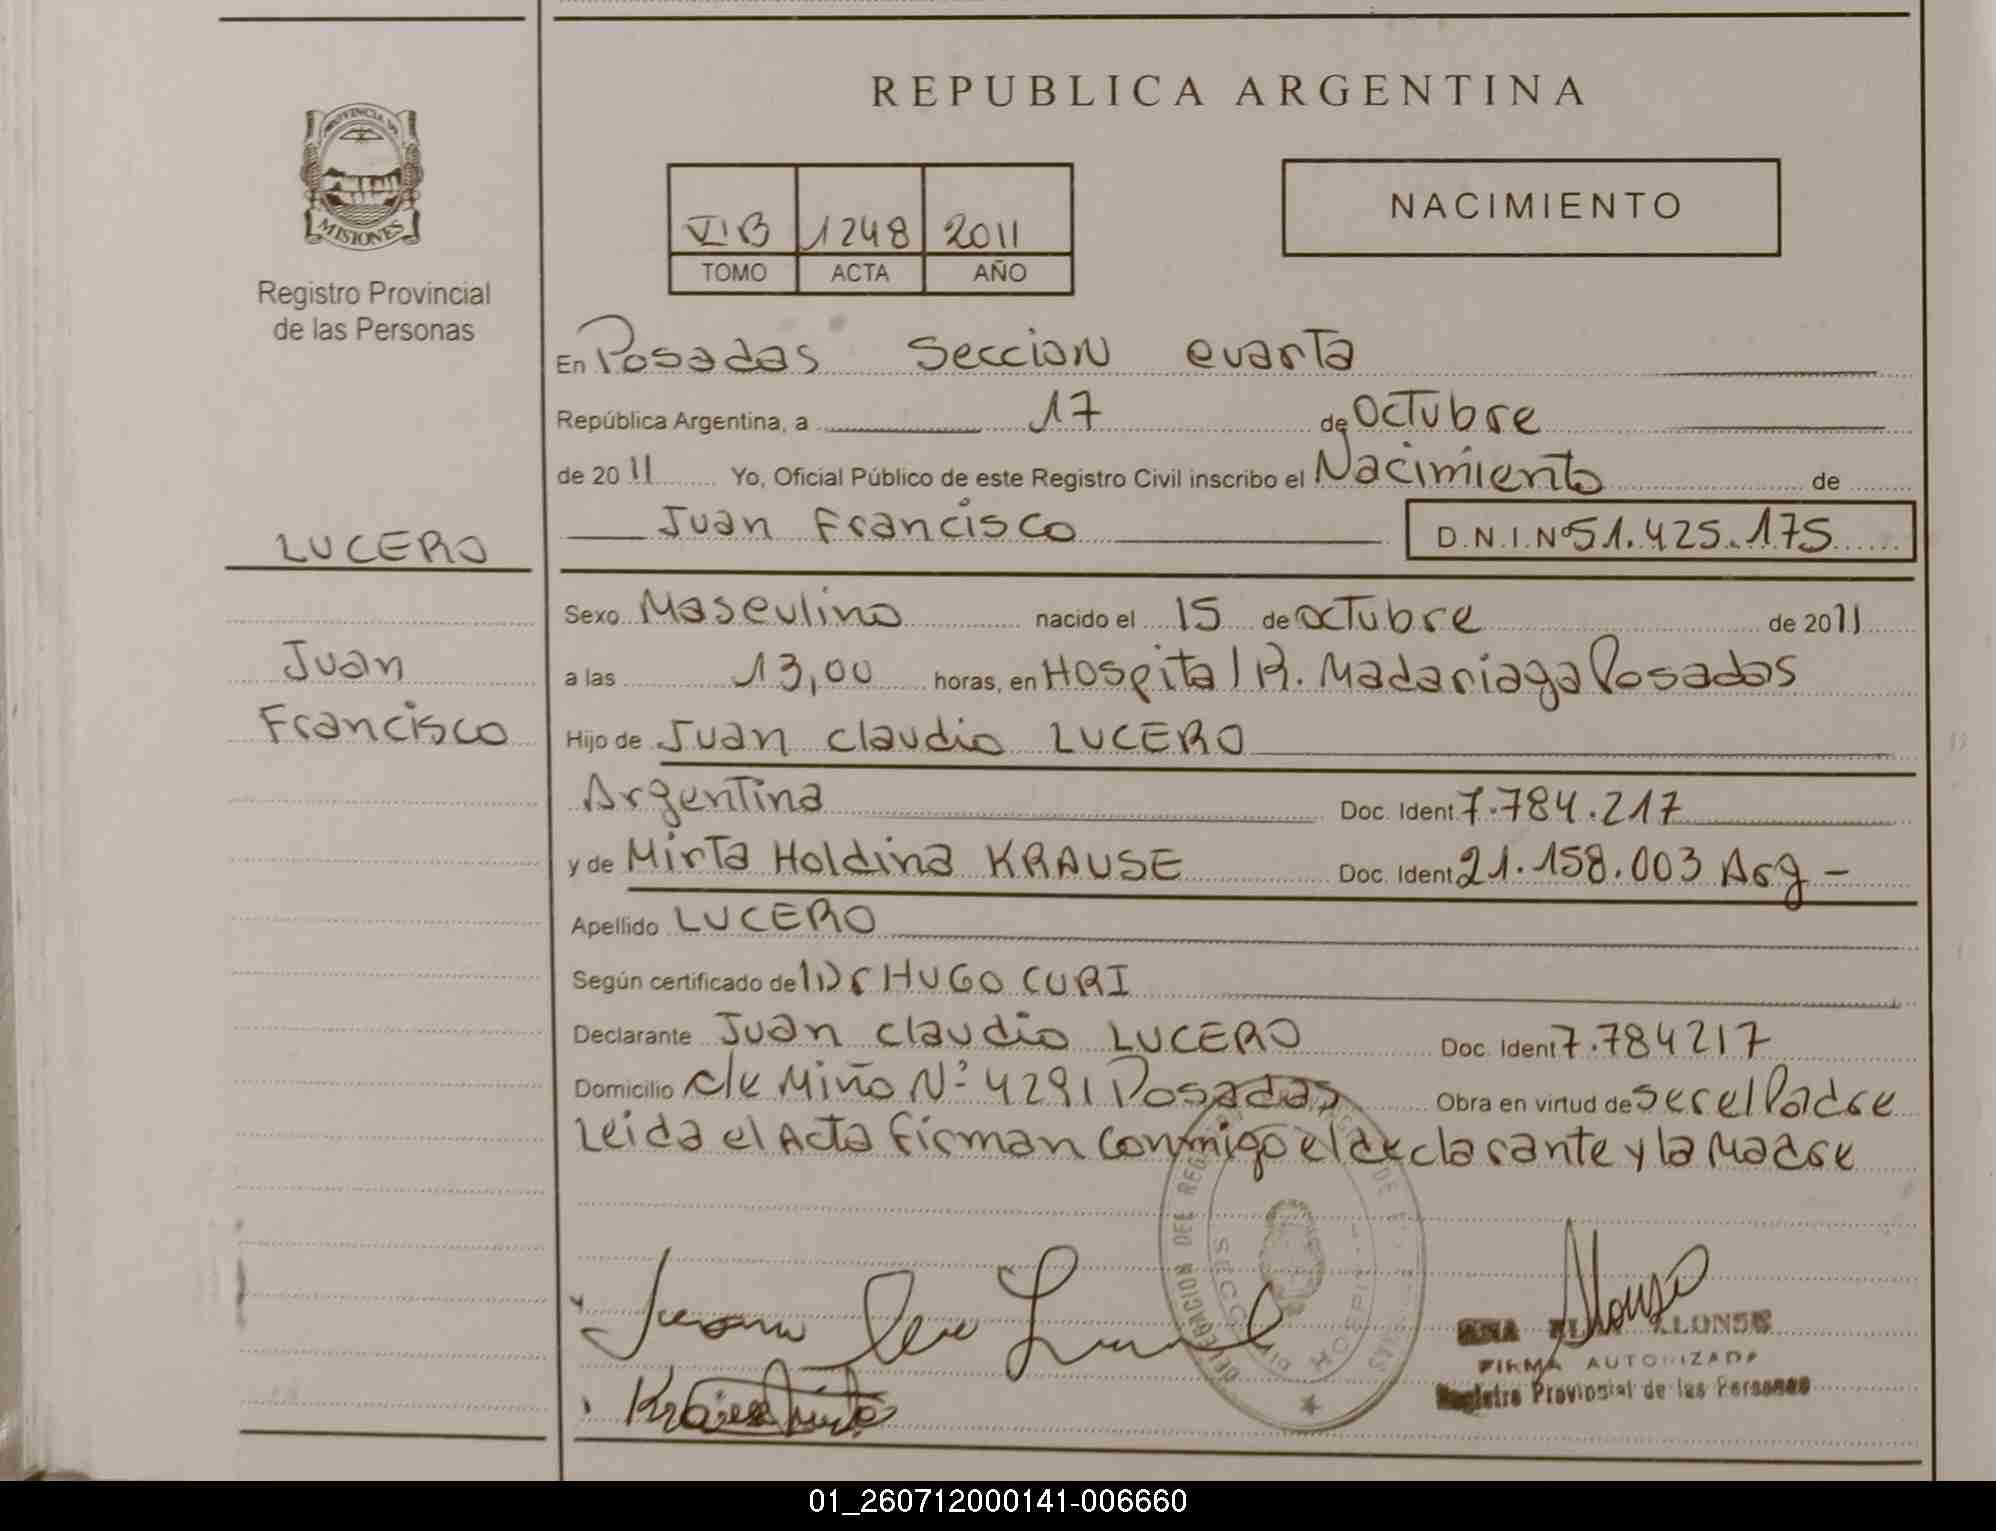 REPUBLICA ARGENTINA
PROVINCIA DE
MISIONES
Registro Provincial
de las Personas
VI B 1248 2011
TOMO ACTA AÑO
NACIMIENTO
En Posadas Seccion cuarta
República Argentina, a 17 de Octubre
de 2011 Yo, Oficial Público de este Registro Civil inscribo el Nacimiento de
Juan Francisco D.N.I.Nº 51.425.175
LUCERO
Juan
Francisco
Sexo Masculino nacido el 15 de octubre de 2011
a las 13,00 horas, en Hospital R. Madariaga Posadas
Hijo de Juan Claudio LUCERO
Argentina Doc. Ident 7.784.217
y de Mirta Holdina KRAUSE Doc. Ident 21.158.003 Arg -
Apellido LUCERO
Según certificado de Dr HUGO CURI
Declarante Juan Claudio LUCERO Doc. Ident 7.784217
Domicilio c/e Miño Nº 4291 Posadas Obra en virtud de ser el Padre
Leida el Acta firman conmigo el declarante y la Madre
DELEGACION DEL
Alonso
ALONSO
FIRMA AUTORIZADA
Registro Provincial de las Personas
01_260712000141-006660